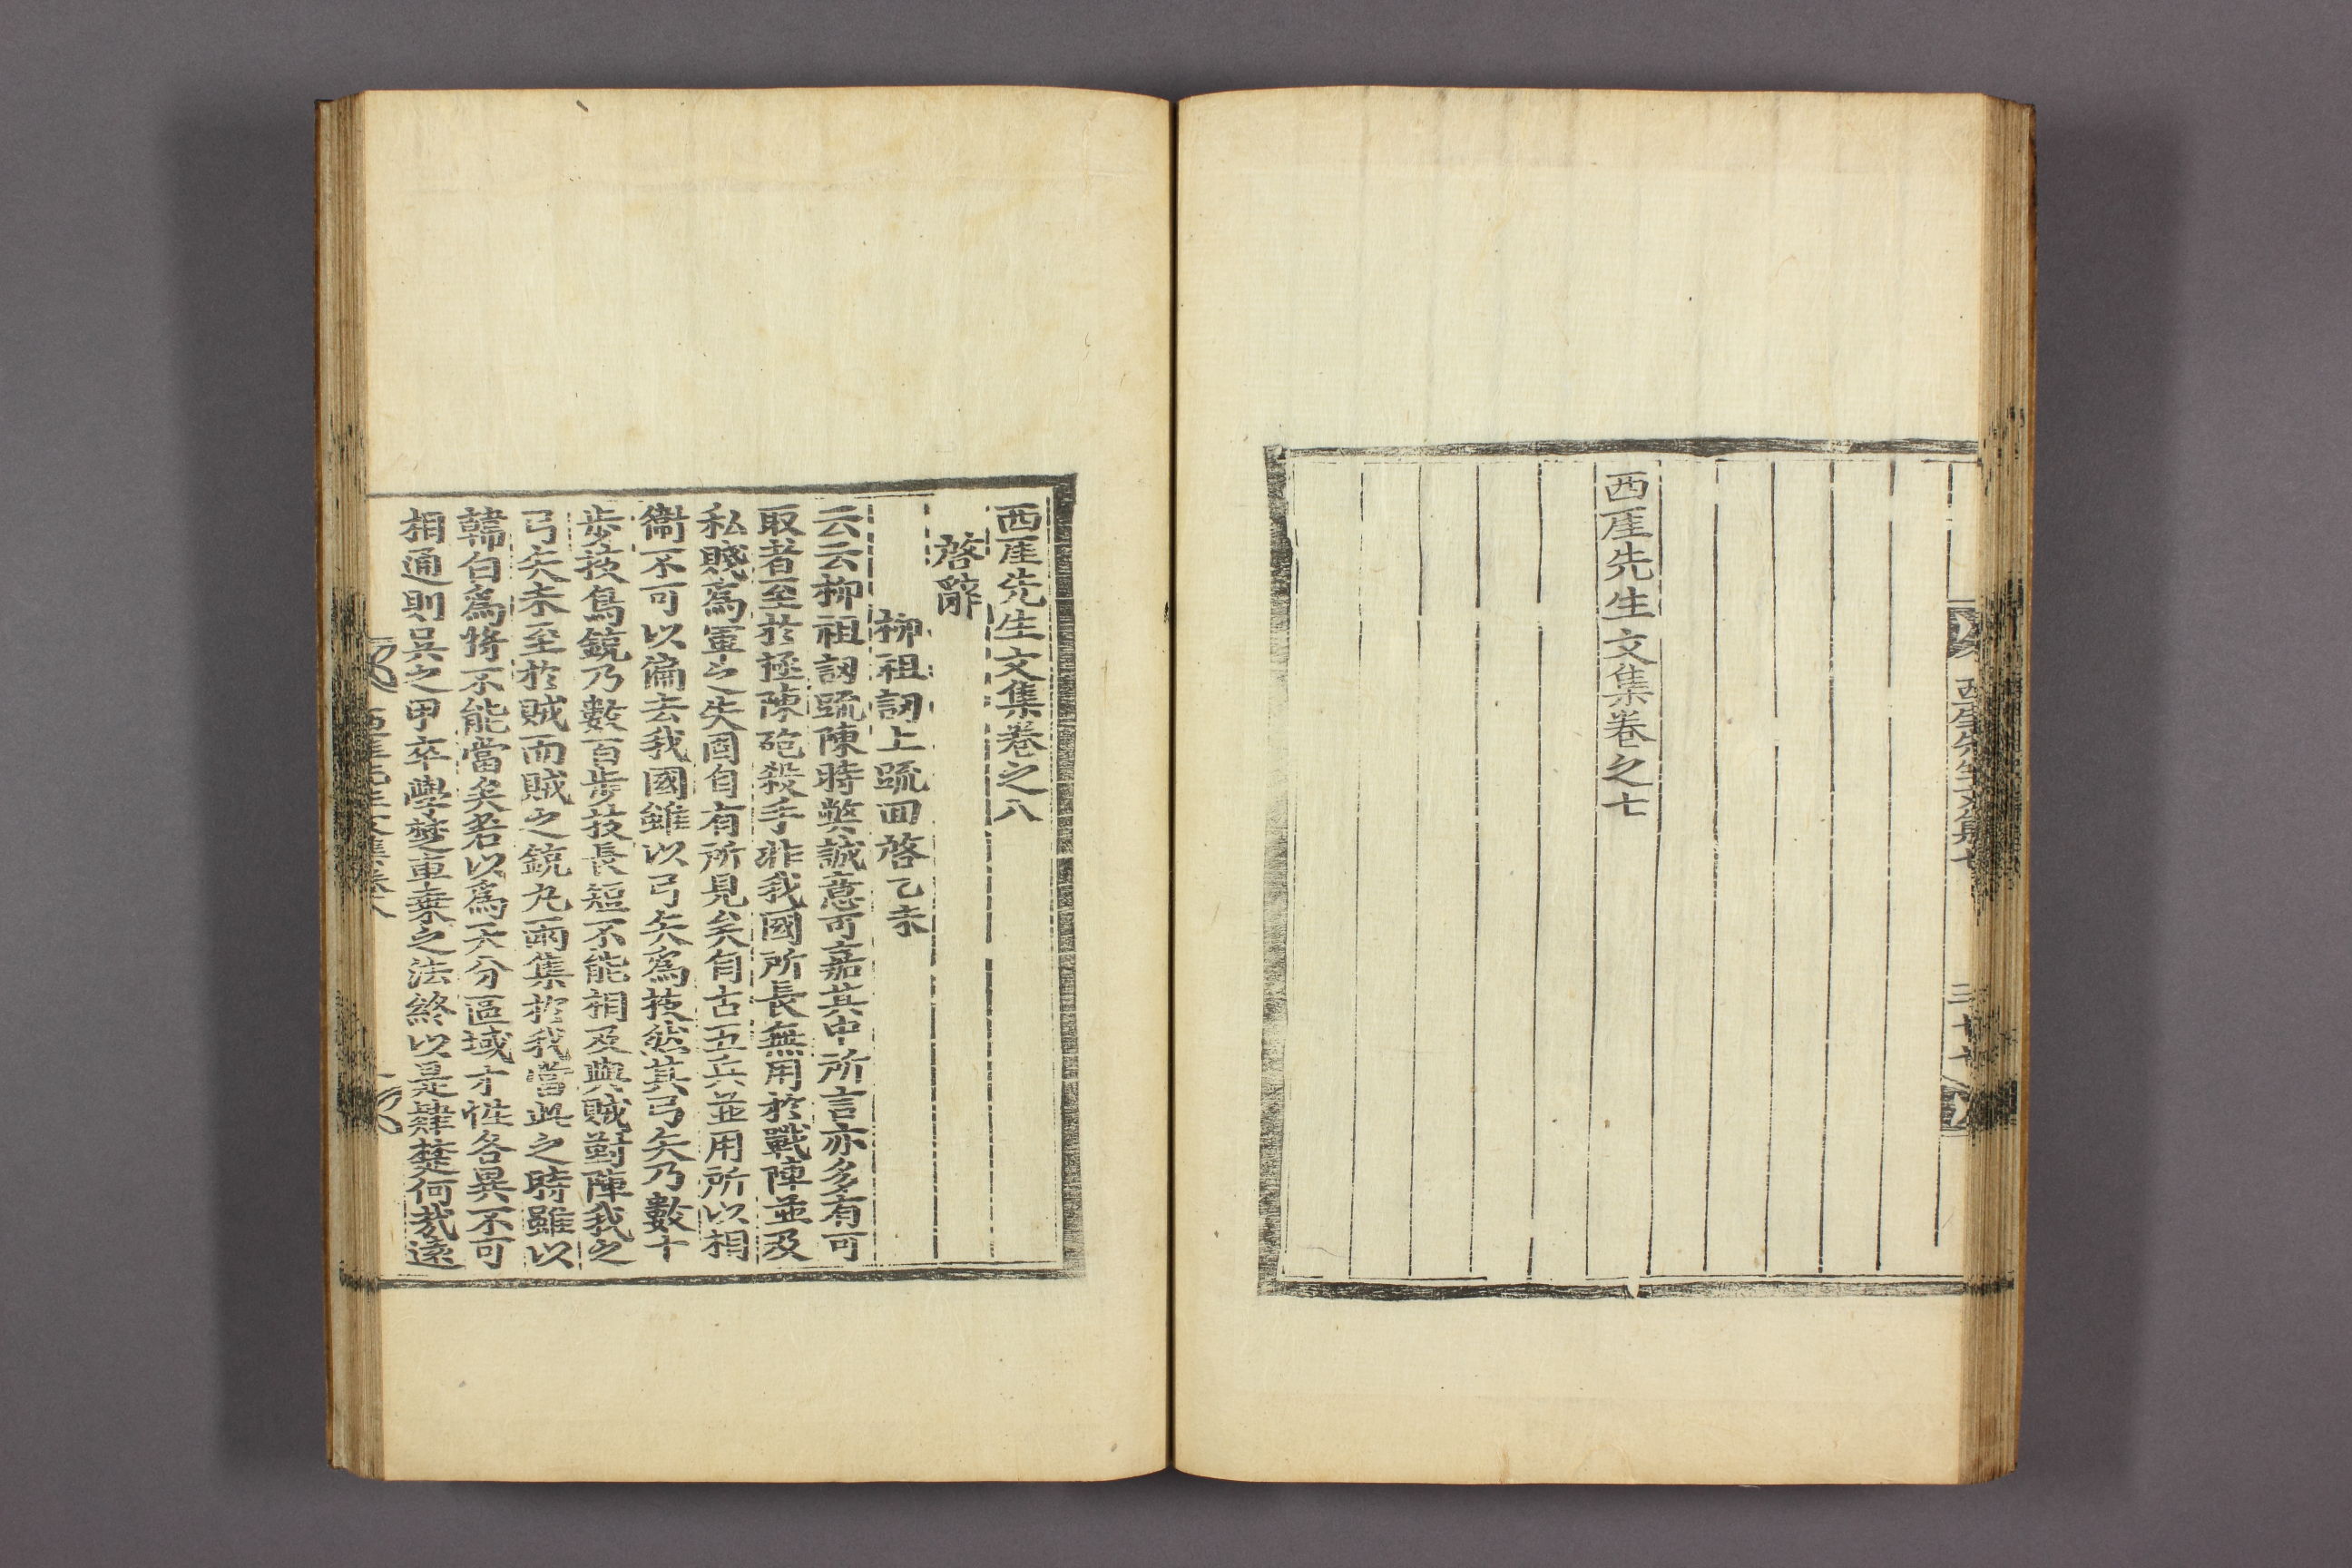 西厓先生文集卷之七
西厓先生文集卷之八
啓辭
柳祖訒上疏回啓乙未
云云柳祖訒疏陳時弊誠意可嘉其中所言亦多有可
取者至於極陳砲殺手非我國所長無用於戰陣並及
私賤爲軍之失固自有所見矣自古五兵並用所以相
衞不可以偏去我國雖以弓矢爲技然其弓矢乃數十
步技鳥銃乃數百步技長短不能相及與賊對陣我之
弓矢未至於賊而賊之銃丸雨集於我當此之時雖以
韓白爲將不能當矣若以爲天分區域才性各異不可
相通則吳之甲卒學楚車乗之法終以是肆楚何哉遠